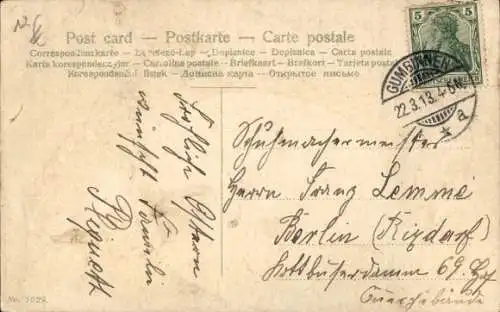 Post card – Postkarte – Carte postale
Correspondenzkarte – Levelező-Lap – Dopisnice – Dopisnica – Carta postale
Karta korespondencyjna – Cartolina postale – Briefkaart – Brefkort – Tarjeta postal
Korespondenční lístek – Дописна карта – Открытое письмо
5
GUMBINNEN
22.3.13. 4-5N.
* a
Schuhmachermeister
Herrn Franz Lemme
Berlin (Rixdorf)
Kottbuserdamm 69. Hof
Quergebäude
Fröhliche Ostern
wünscht Familie
No. 7029.